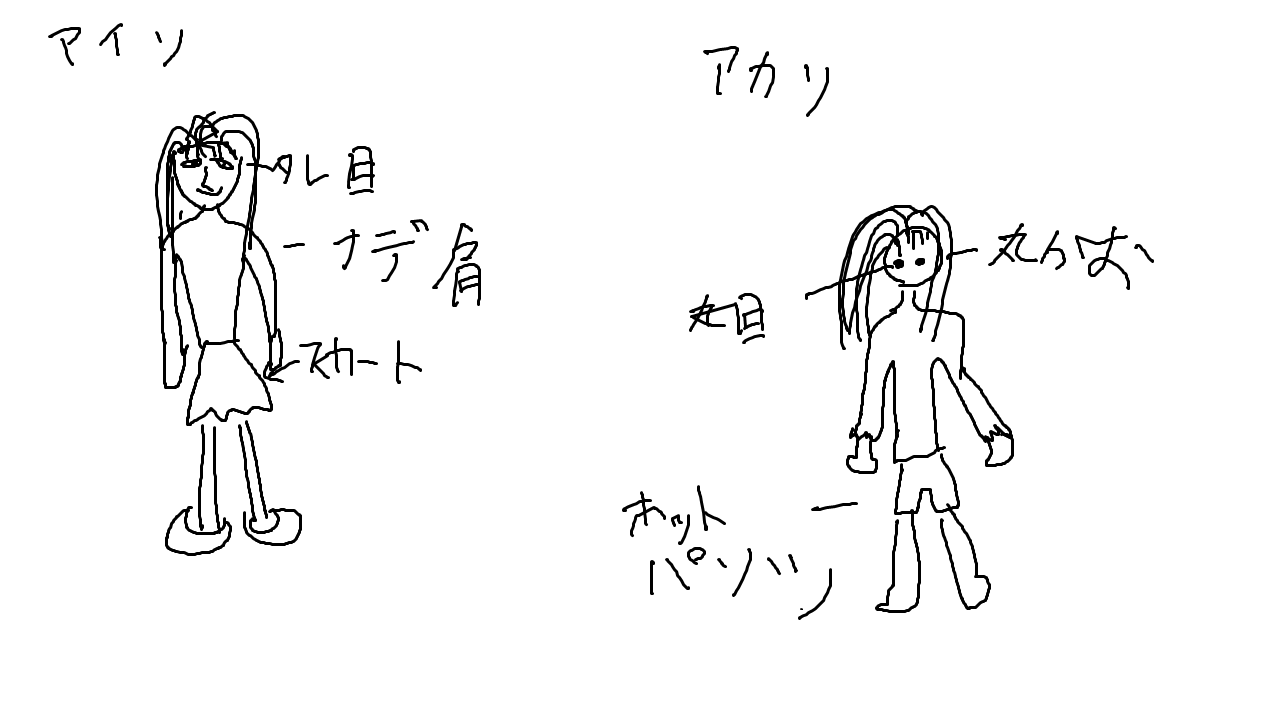 アイソ
タレ目
ナデ肩
スカート
アカリ
丸んばい
丸目
ホット
パンツ